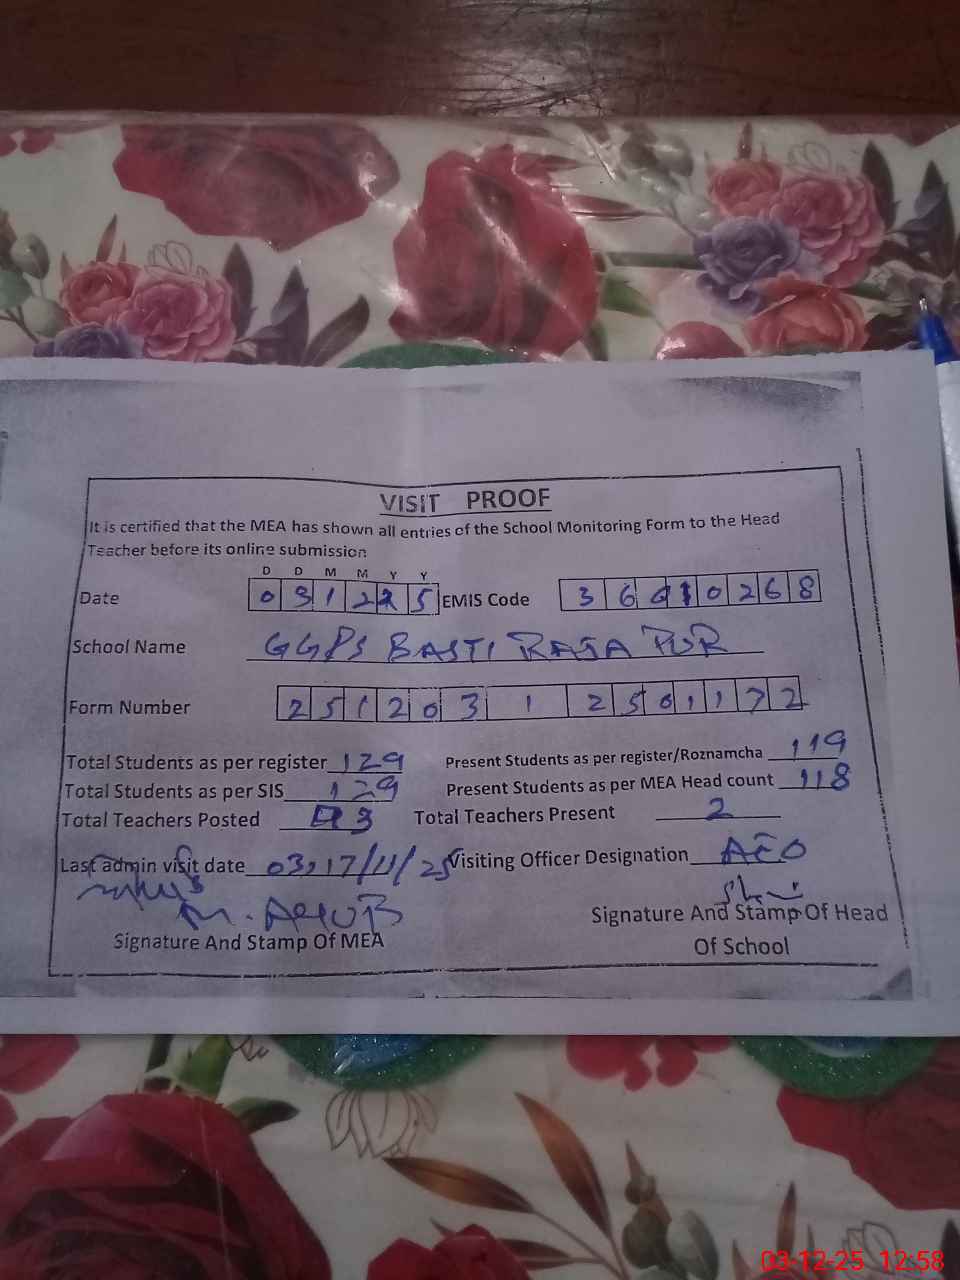 VISIT PROOF
It is certified that the MEA has shown all entries of the School Monitoring Form to the Head
Teacher before its online submission
D D M M Y Y
Date 0 3 1 2 2 5 EMIS Code 3 6 6 1 0 2 6 8
School Name GGPS BASTI RAJA PUR
Form Number 2 5 1 2 0 3 1 2 5 0 1 1 7 2
Total Students as per register 129 Present Students as per register/Roznamcha 119
Total Students as per SIS 129 Present Students as per MEA Head count 118
Total Teachers Posted 3 Total Teachers Present 2
Last admin visit date 03, 17/11/25 Visiting Officer Designation AEO
M. AYUB
Signature And Stamp Of MEA
Signature And Stamp Of Head
Of School
03-12-25 12:58